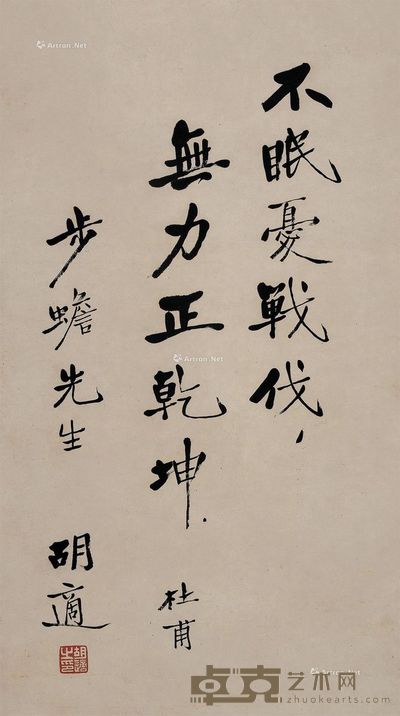 不眠憂戰伐，
無力正乾坤．
杜甫
步蟾先生
胡適
胡適之印
Artron.Net
Artron.Net
Artron.Net
卓克艺术网